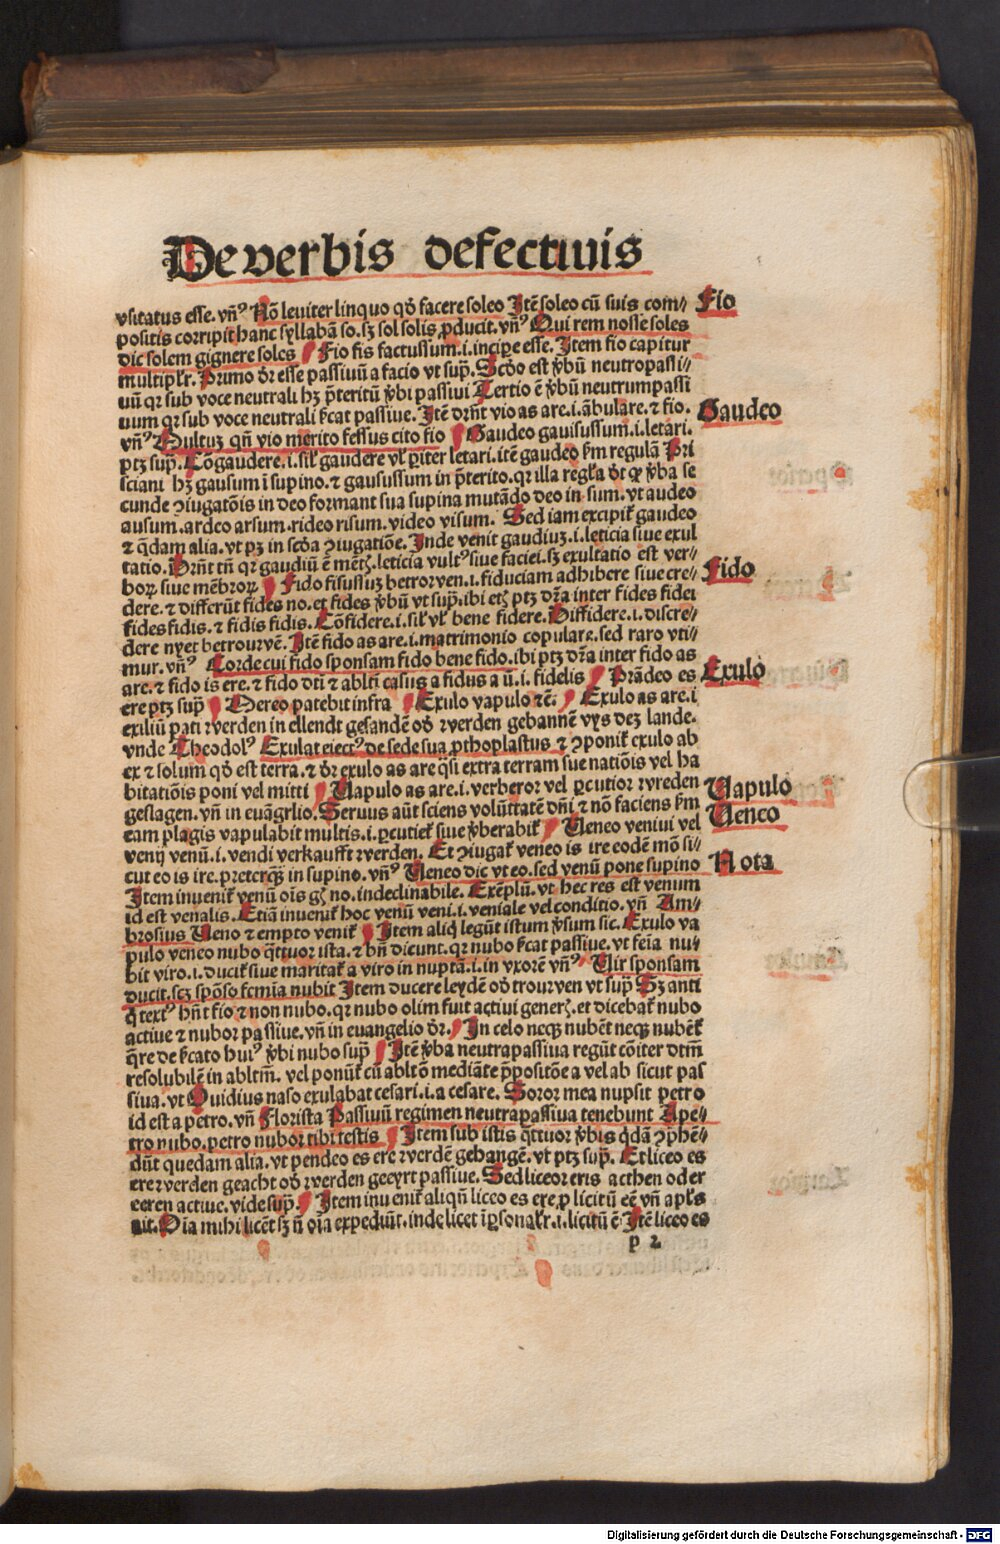 De verbis defectiuis
vsitatus esse. vñꝰ Nõ leuiter linquo qđ facere soleo Jtẽ soleo cũ suis com⸗
Fio
positis corripit hanc syllabã so. sʒ sol solis ꝓducit. vñꝰ Qui rem nosse soles
dic solem gignere soles Fio fis factussum .i. incipe esse. Jtem fio capitur
multiplr̃. Primo dr̃ esse passiuũ a facio vt supͣ. Scḋo est v̾bũ neutropassi⸗
uũ qr sub voce neutrali hʒ p̃teritũ v̾bi passiui Tertio ẽ v̾bũ neutrumpassi
uum qr sub voce neutrali significat passiue. Jtẽ dr̃nt vio as are .i. ãbulare. ⁊ fio.
Gaudeo
vñꝰ Multuʒ qñ vio merito fessus cito fio Gaudeo gauisussum .i. letari.
ptʒ supͣ. Cõgaudere .i. sil̾ gaudere vl̾ pariter letari. itẽ gaudeo ßm regulã Pri
sciani hʒ gausum ĩ supino. ⁊ gausussum in p̃terito. qr illa regl̾a dt ꝙ v̾ba se
cunde ꝯiugatõis in deo formant sua supina mutãdo deo in sum. vt audeo
ausum. ardeo arsum. rideo risum. video visum. Sed iam excipit̾ gaudeo
⁊ q̃dam alia. vt ptʒ in scḋa ꝯiugatiõe. Jnde venit gaudiuʒ .i. leticia siue exul
tatio. Dr̃nt tñ qr gaudiũ ẽ mẽtʒ. leticia vultꝰ siue faciei. sʒ exultatio est ver⸗
Fido
borꝝ siue mẽbrorꝝ Fido fisussuʒ betrorven .i. fiduciam adhibere siue cre⸗
dere. ⁊ differũt fides no. et fides v̾bũ vt supͣ. ibi etʒ ptʒ dr̃a inter fides fidei
fides fidis. ⁊ fidis fidis. Cõfidere .i. sil̾ vl̾ bene fidere. Diffidere .i. discre⸗
dere nyet betrourvẽ. Jtẽ fido as are .i. matrimonio copulare. sed raro vti⸗
mur. vñꝰ Corde cui fido sponsam fido bene fido. ibi ptʒ dr̃a inter fido as
Exulo
are. ⁊ fido is ere. ⁊ fido dti ⁊ ablti casus a fidus a ũ .i. fidelis Prãdeo es
ere ptʒ supͣ Mereo patebit infra Exulo vapulo ⁊c̃. Exulo as are .i
exiliũ pati rverden in ellendt gesandẽ oď rverden gebannẽ vys deʒ lande.
vnde Theodolꝰ Exulat eiectꝰ de sede sua ꝓthoplastus ⁊ ꝯponit̾ exulo ab
ex ⁊ solum qđ est terra. ⁊ dr̃ exulo as are q̃si extra terram sue natiõis vel ha
Vapulo
bitatiõis poni vel mitti Vapulo as are .i. verberor vel ꝑcutior rvreden
geslagen. vñ in euãgelio. Seruus aũt sciens volũtatẽ dñi ⁊ nõ faciens ßm
Veneo
eam plagis vapulabit multis .i. ꝑcutiet̾ siue v̾berabit̾ Veneo veniui vel
venij venũ .i. vendi verkaufft rverden. Et ꝯiugat̾ veneo is ire eodẽ mõ si⸗
Nota
cut eo is ire. preterqʒ in supino. vñꝰ Veneo dic vt eo. sed venũ pone supino
Jtem inuenit̾ venũ oĩs gñ̃ no. indeclinabile. Exẽplũ. vt hec res est venum
id est venalis. Etiã inuenit̾ hoc venũ veni .i. veniale vel conditio. vñ Am⸗
brosius Veno ⁊ empto venit̾ Jtem aliq̾ legũt istum v̾sum sic. Exulo va
pulo veneo nubo q̃ttuor ista. ⁊ bñ dicunt. qr nubo significat passiue. vt feĩa nu⸗
bit viro .i. ducit̾ siue maritat̾ a viro in nuptã .i. in vxorẽ vñꝰ Vir sponsam
ducit. sʒ spõso femĩa nubit Jtem ducere leydẽ oď trourven vt supͣ Sʒ anti
q̾ textꝰ hñt fio ⁊ non nubo. qr nubo olim fuit actiui generʒ. et dicebat̾ nubo
actiue ⁊ nubor passiue. vñ in euangelio dr̃. Jn celo necqʒ nubẽt necqʒ nubẽt̾
q̃re de significato huiꝰ v̾bi nubo supͣ Jtẽ v̾ba neutrapassiua regũt cõiter dtm̃
resolubilẽ in abltm̃. vel ponũt̾ cũ abltõ mediãte p̃positõe a vel ab sicut pas
siua. vt Ouidius naso exulabat cesari .i. a cesare. Soror mea nupsit petro
id est a petro. vñ Florista Passiuũ regimen neutrapassiua tenebunt A pe⸗
tro nubo. petro nubor tibi testis Jtem sub istis q̃ttuor v̾bis q̃dã ꝯp̾hẽ⸗
dũt quedam alia. vt pendeo es ere rverdẽ gehangẽ. vt ptʒ supͣ. Et liceo es
ere rverden geacht oď rverden geeyrt passiue. Sed liceor eris achten oder
eeren actiue. vide supͣ. Jtem inuenit̾ aliqñ liceo es ere ꝓ licitũ eẽ vñ apl̾s
ait. Oĩa mihi licẽt sʒ ñ oĩa expediũt. inde licet ĩꝑsonal̾r .i. licitũ ẽ Jtẽ liceo es
p 2
Digitalisierung gefördert durch die Deutsche Forschungsgemeinschaft - DFG